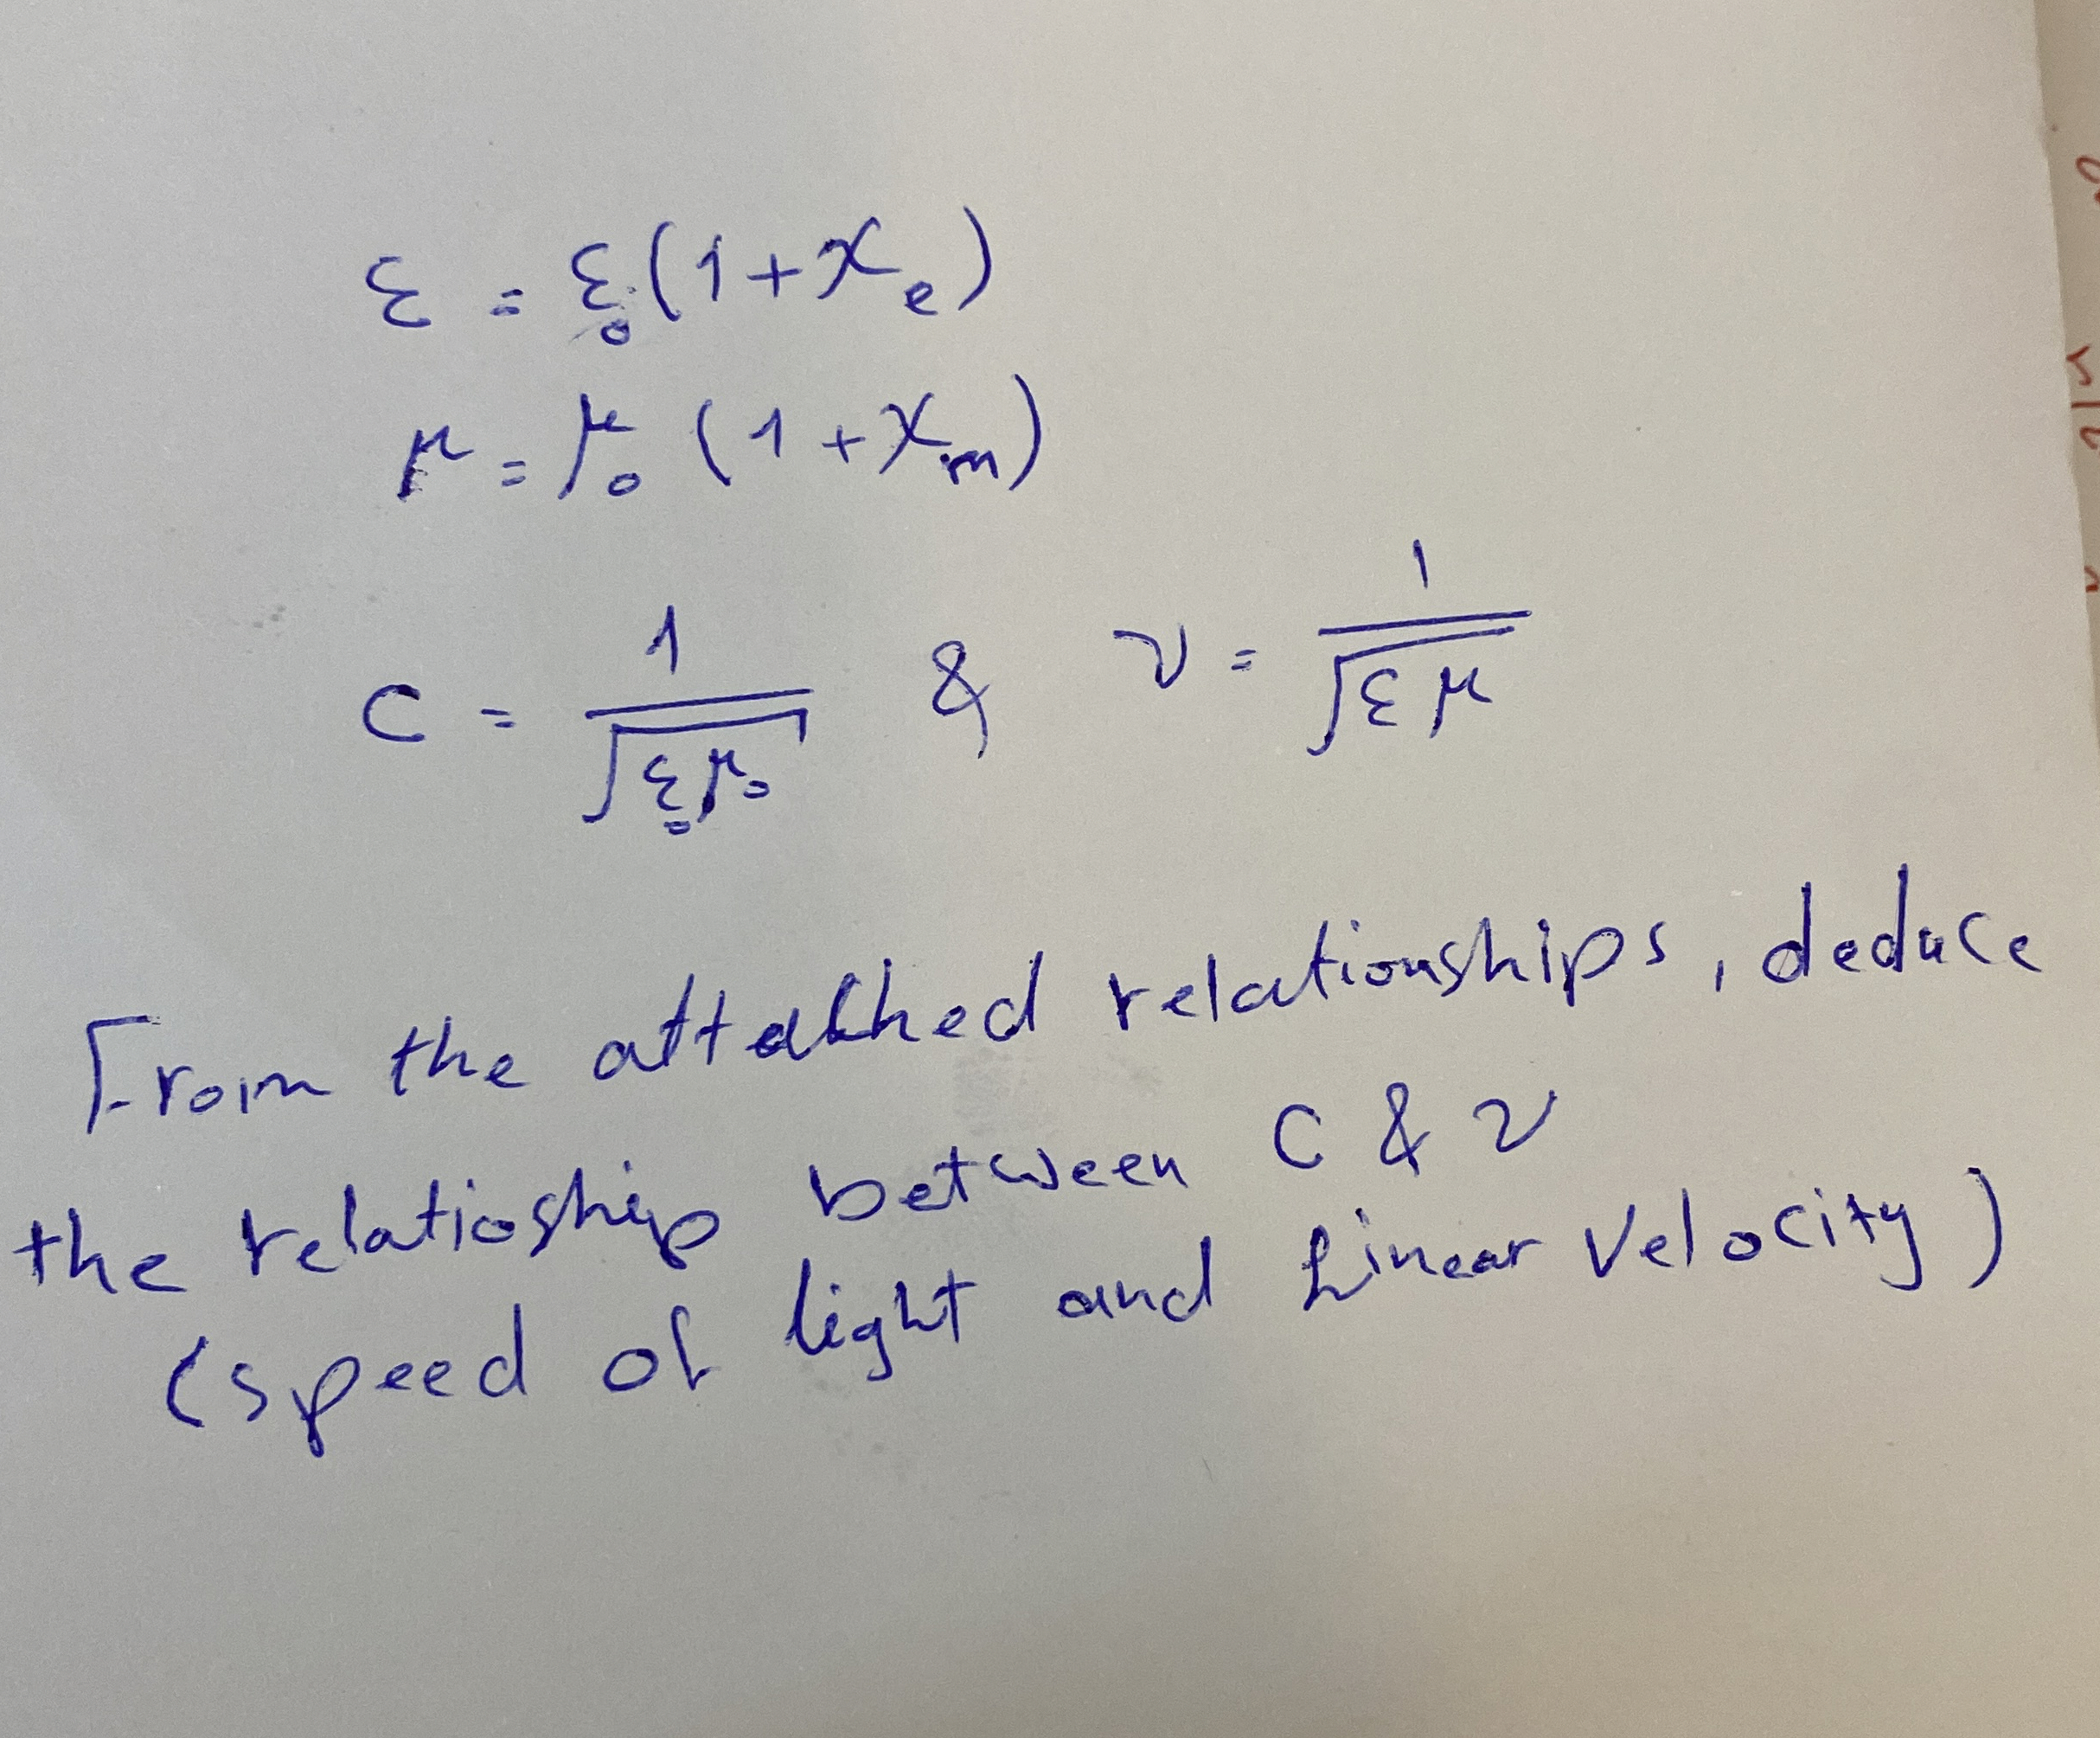 ε = ε₀(1+χₑ)
μ = μ₀ (1+χₘ)
C = 1/√(ε₀μ₀) & v = 1/√(εμ)
From the attached relationships, deduce
the relatioship between C & v
(speed of light and Linear Velocity)